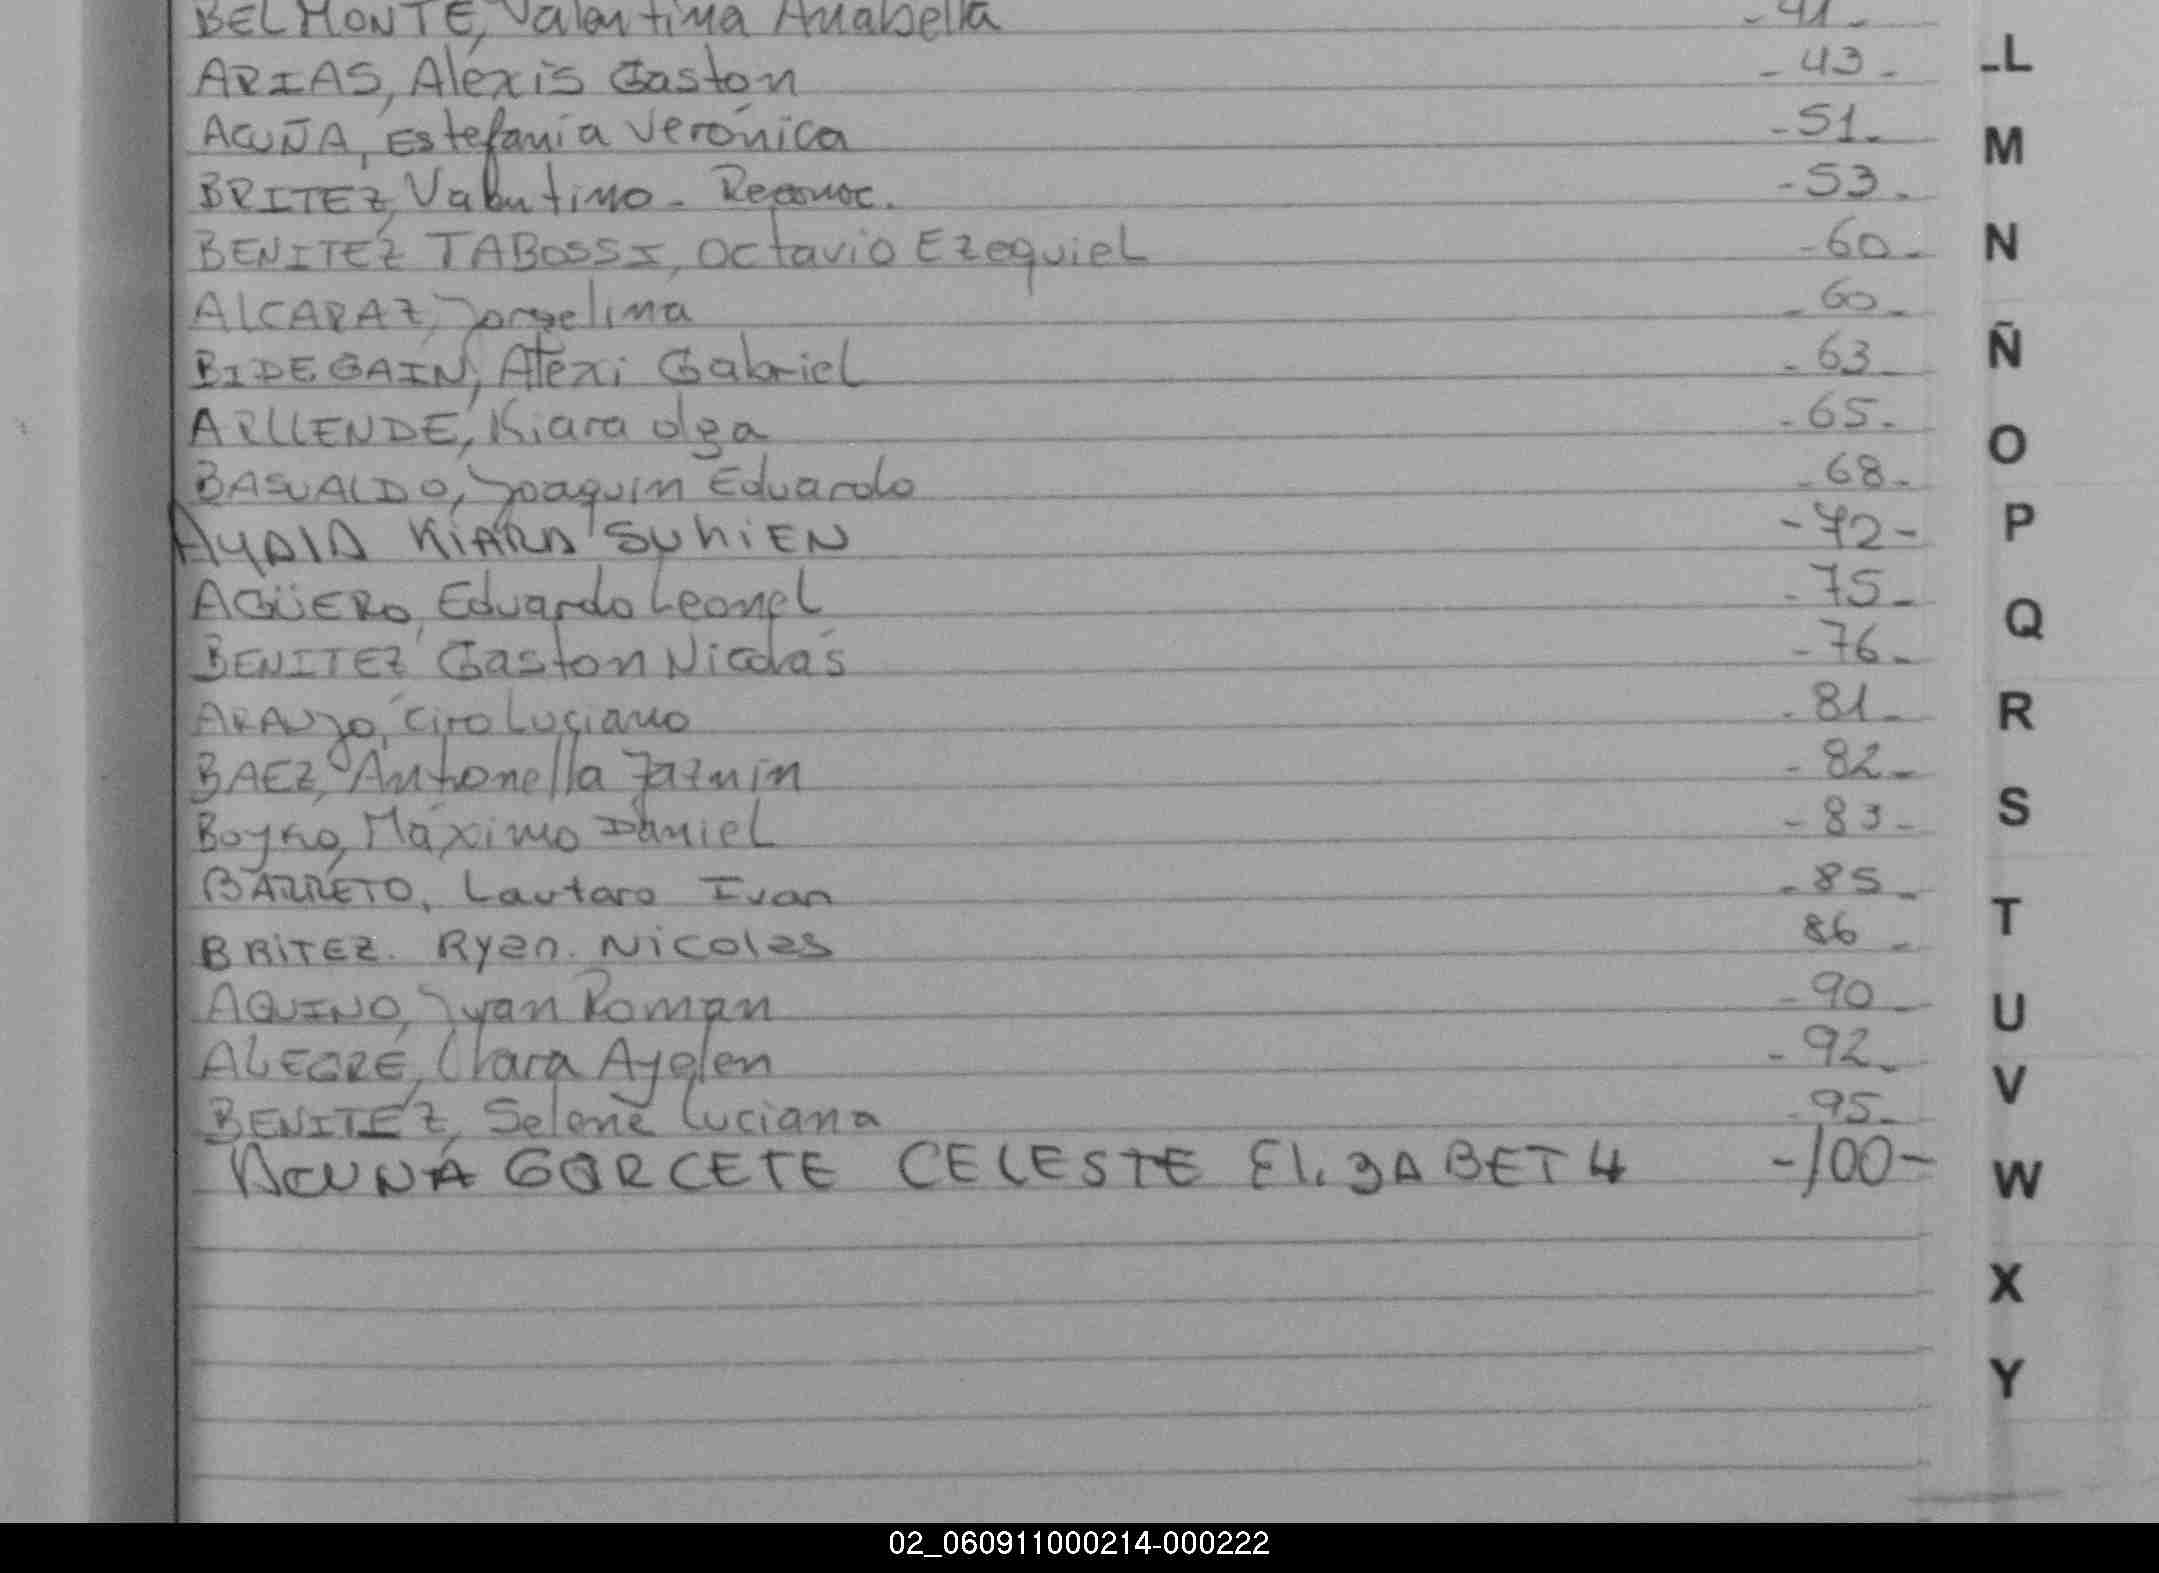 BELMONTE, Valentina Anabella -41-
ARIAS, Alexis Gaston -43-
ACUÑA, Estefanía Verónica -51-
BRITEZ, Valentino - Reconoc. -53-
BENITEZ TABOSSI, Octavio Ezequiel -60-
ALCARAZ, Jorgelina -60-
BIDEGAIN, Alexi Gabriel -63-
ARLLENDE, Kiara Olga -65-
BASUALDO, Joaquín Eduardo -68-
AYALA KIARA SUHIEN -72-
AGÜERO, Eduardo Leonel -75-
BENITEZ Gaston Nicolás -76-
ARAUJO, Ciro Luciano -81-
BAEZ, Antonella Jazmín -82-
BOYKO, Máximo Daniel -83-
BARRETO, Lautaro Ivan -85-
BRITEZ. Ryan. Nicolas 86-
AQUINO, Ivan Roman -90-
ALEGRE, Clara Ayelen -92-
BENITEZ, Selene Luciana -95-
ACUNA GORCETE CELESTE ELIZABETH -100-
L
M
N
Ñ
O
P
Q
R
S
T
U
V
W
X
Y
02_060911000214-000222